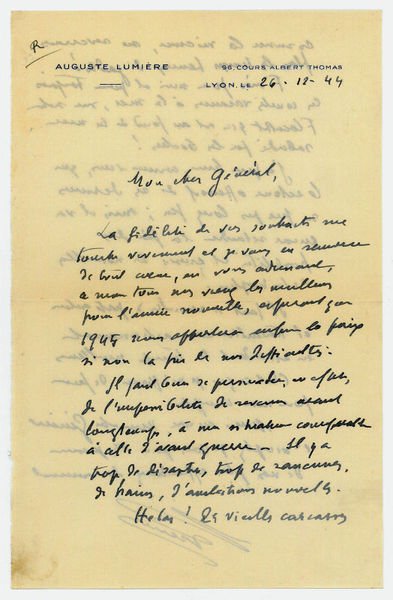 R
AUGUSTE LUMIÈRE
96, COURS ALBERT THOMAS
LYON, LE 26-12-44
Mon cher Général,
La fidélité de vos souhaits me
touche vivement et je vous en remercie
de tout cœur, en vous adressant,
à mon tour nos vœux les meilleurs
pour l'année nouvelle, espérant que
1945 nous apportera enfin la paix
si non la fin de nos difficultés.
Il faut bien se persuader, en effet,
de l'impossibilité de revenir avant
longtemps, à une situation comparable
à celle d'avant guerre. Il y a
trop de désastres, trop de rancunes,
de haines, d'ambitions nouvelles.
Hélas! Les vieilles carcasses